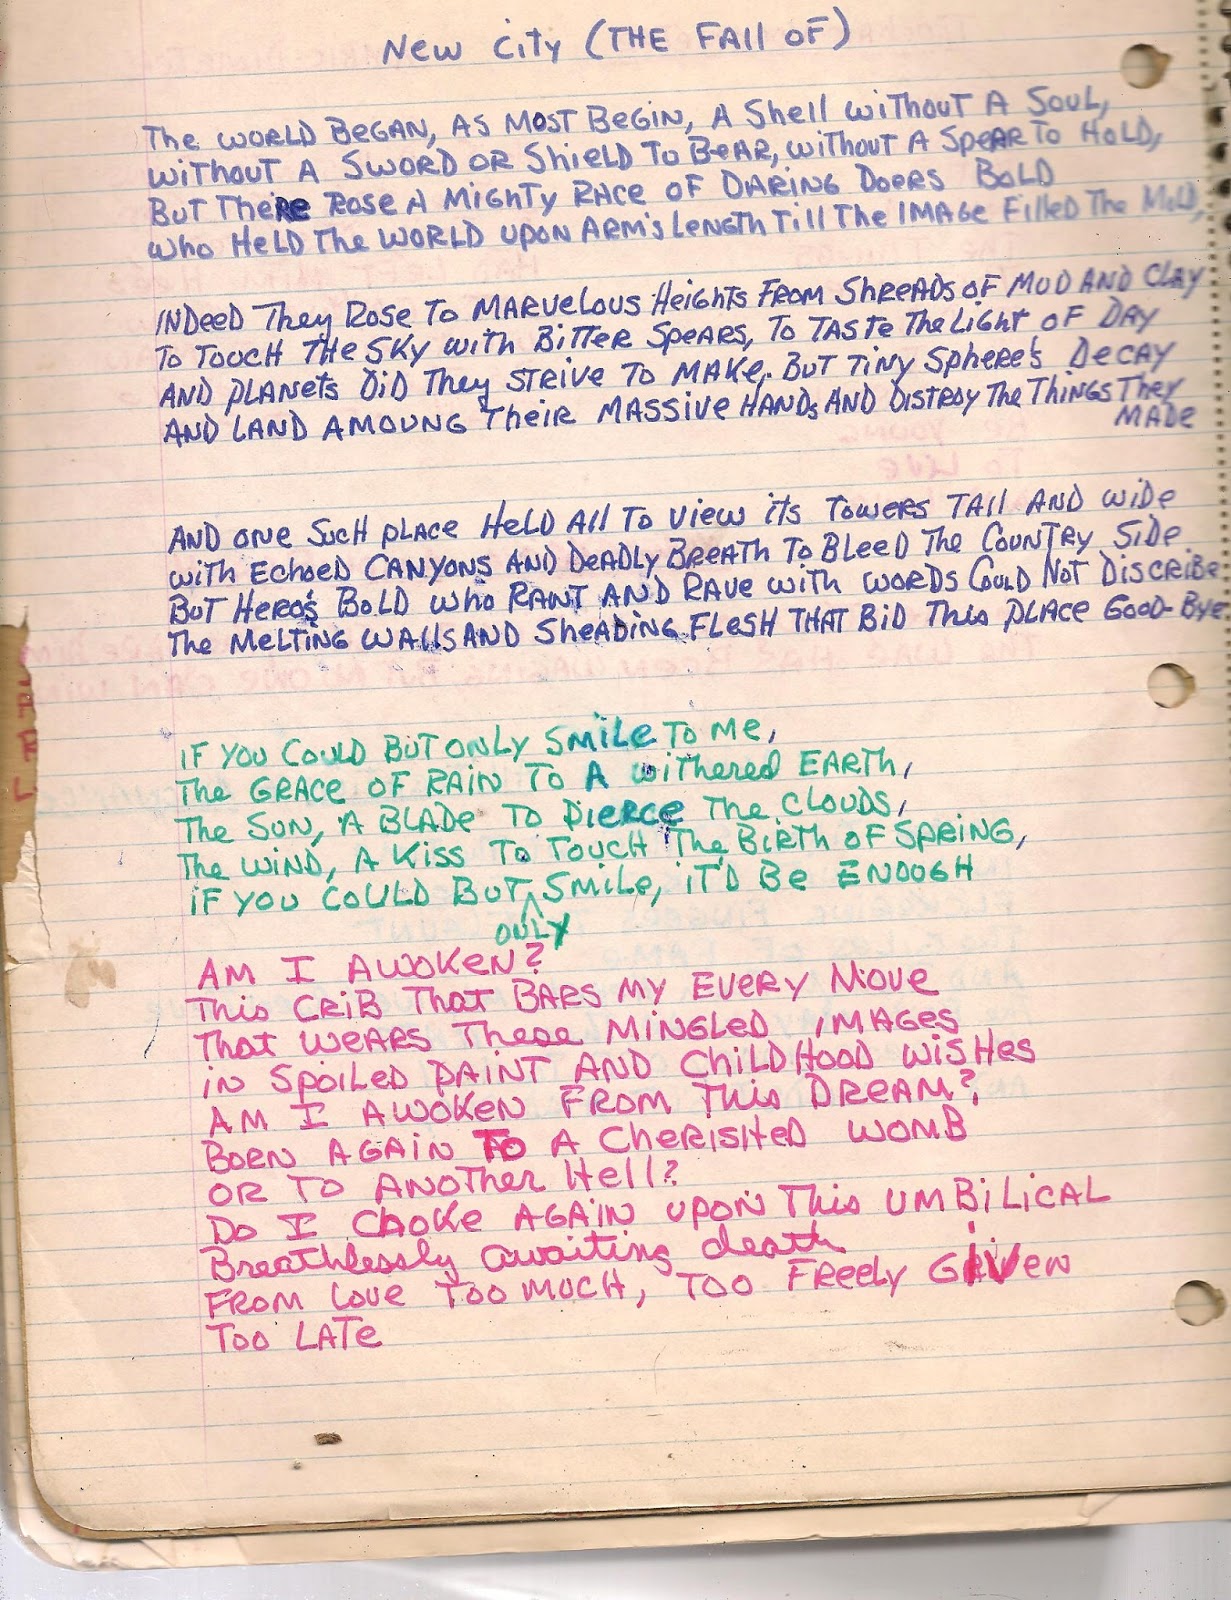 New City (THE FAll OF)
The WORLD BEGAN, AS MOST BEGIN, A Shell WiThOUT A SOUL,
WiTHOUT A SWORD OR ShiELD TO BEAR, WiTHOUT A SPEAR TO HOLD,
BUT TheRE ROSE A MIGHTY RACE OF DARING DOERS BOLD
WHO HELD THE WORLD UPON ARM'S LENGTH Till THE IMAGE FillED THE MOLD,
INDEED They ROSE TO MARVELOUS HeiGHTS FROM SHREADS OF MUD AND CLAY
TO TOUCH THE SKY WITH BITTER SPEARS, TO TASTE THE LIGHT OF DAY
AND PLANETS DiD They STRIVE TO MAKE, BUT TiNY SPHERE'S DECAY
AND LAND AMOUNG THEIR MASSIVE HANDS AND DISTROY THE THINGS THEY
MADE
AND ONE SUCH PLACE HELD All TO VIEW iTS TOWERS TAll AND WiDE
WiTH ECHOED CANYONS AND DEADLY BREATH TO BLEED THE COUNTRY SiDE
BUT HERO'S BOLD WHO RANT AND RAVE WITH WORDS COULD NOT DISCRIBE
THE MELTING WAllS AND SHEADING FLESH THAT BiD THiS PLACE GOOD-BYE
IF YOU COULD BUT ONLY SMiLE TO ME,
THE GRACE OF RAIN TO A WiTHERED EARTH,
THE SUN, A BLADE TO PiERCE THE CLOUDS,
THE WiND, A KiSS TO TOUCH THE BIRTH OF SPRING,
iF YOU COULD BUT ^ SMiLE, iT'D BE ENOUGH
ONLY
AM I AWOKEN?
THiS CRiB THAT BARS MY EVERY MOVE
THAT WEARS THESE MINGLED IMAGES
iN SPOiLED PAINT AND CHiLDHOOD WiSHES
AM I AWOKEN FROM THiS DREAM?,
BORN AGAIN TO A CHERISHED WOMB
OR TO ANOTHER HEll?
DO I CHOKE AGAIN UPON THiS UMBiLiCAL
Breathlessly awaiting death
FROM LOVE TOO MUCH, TOO FREELY GIVEN
TOO LATE